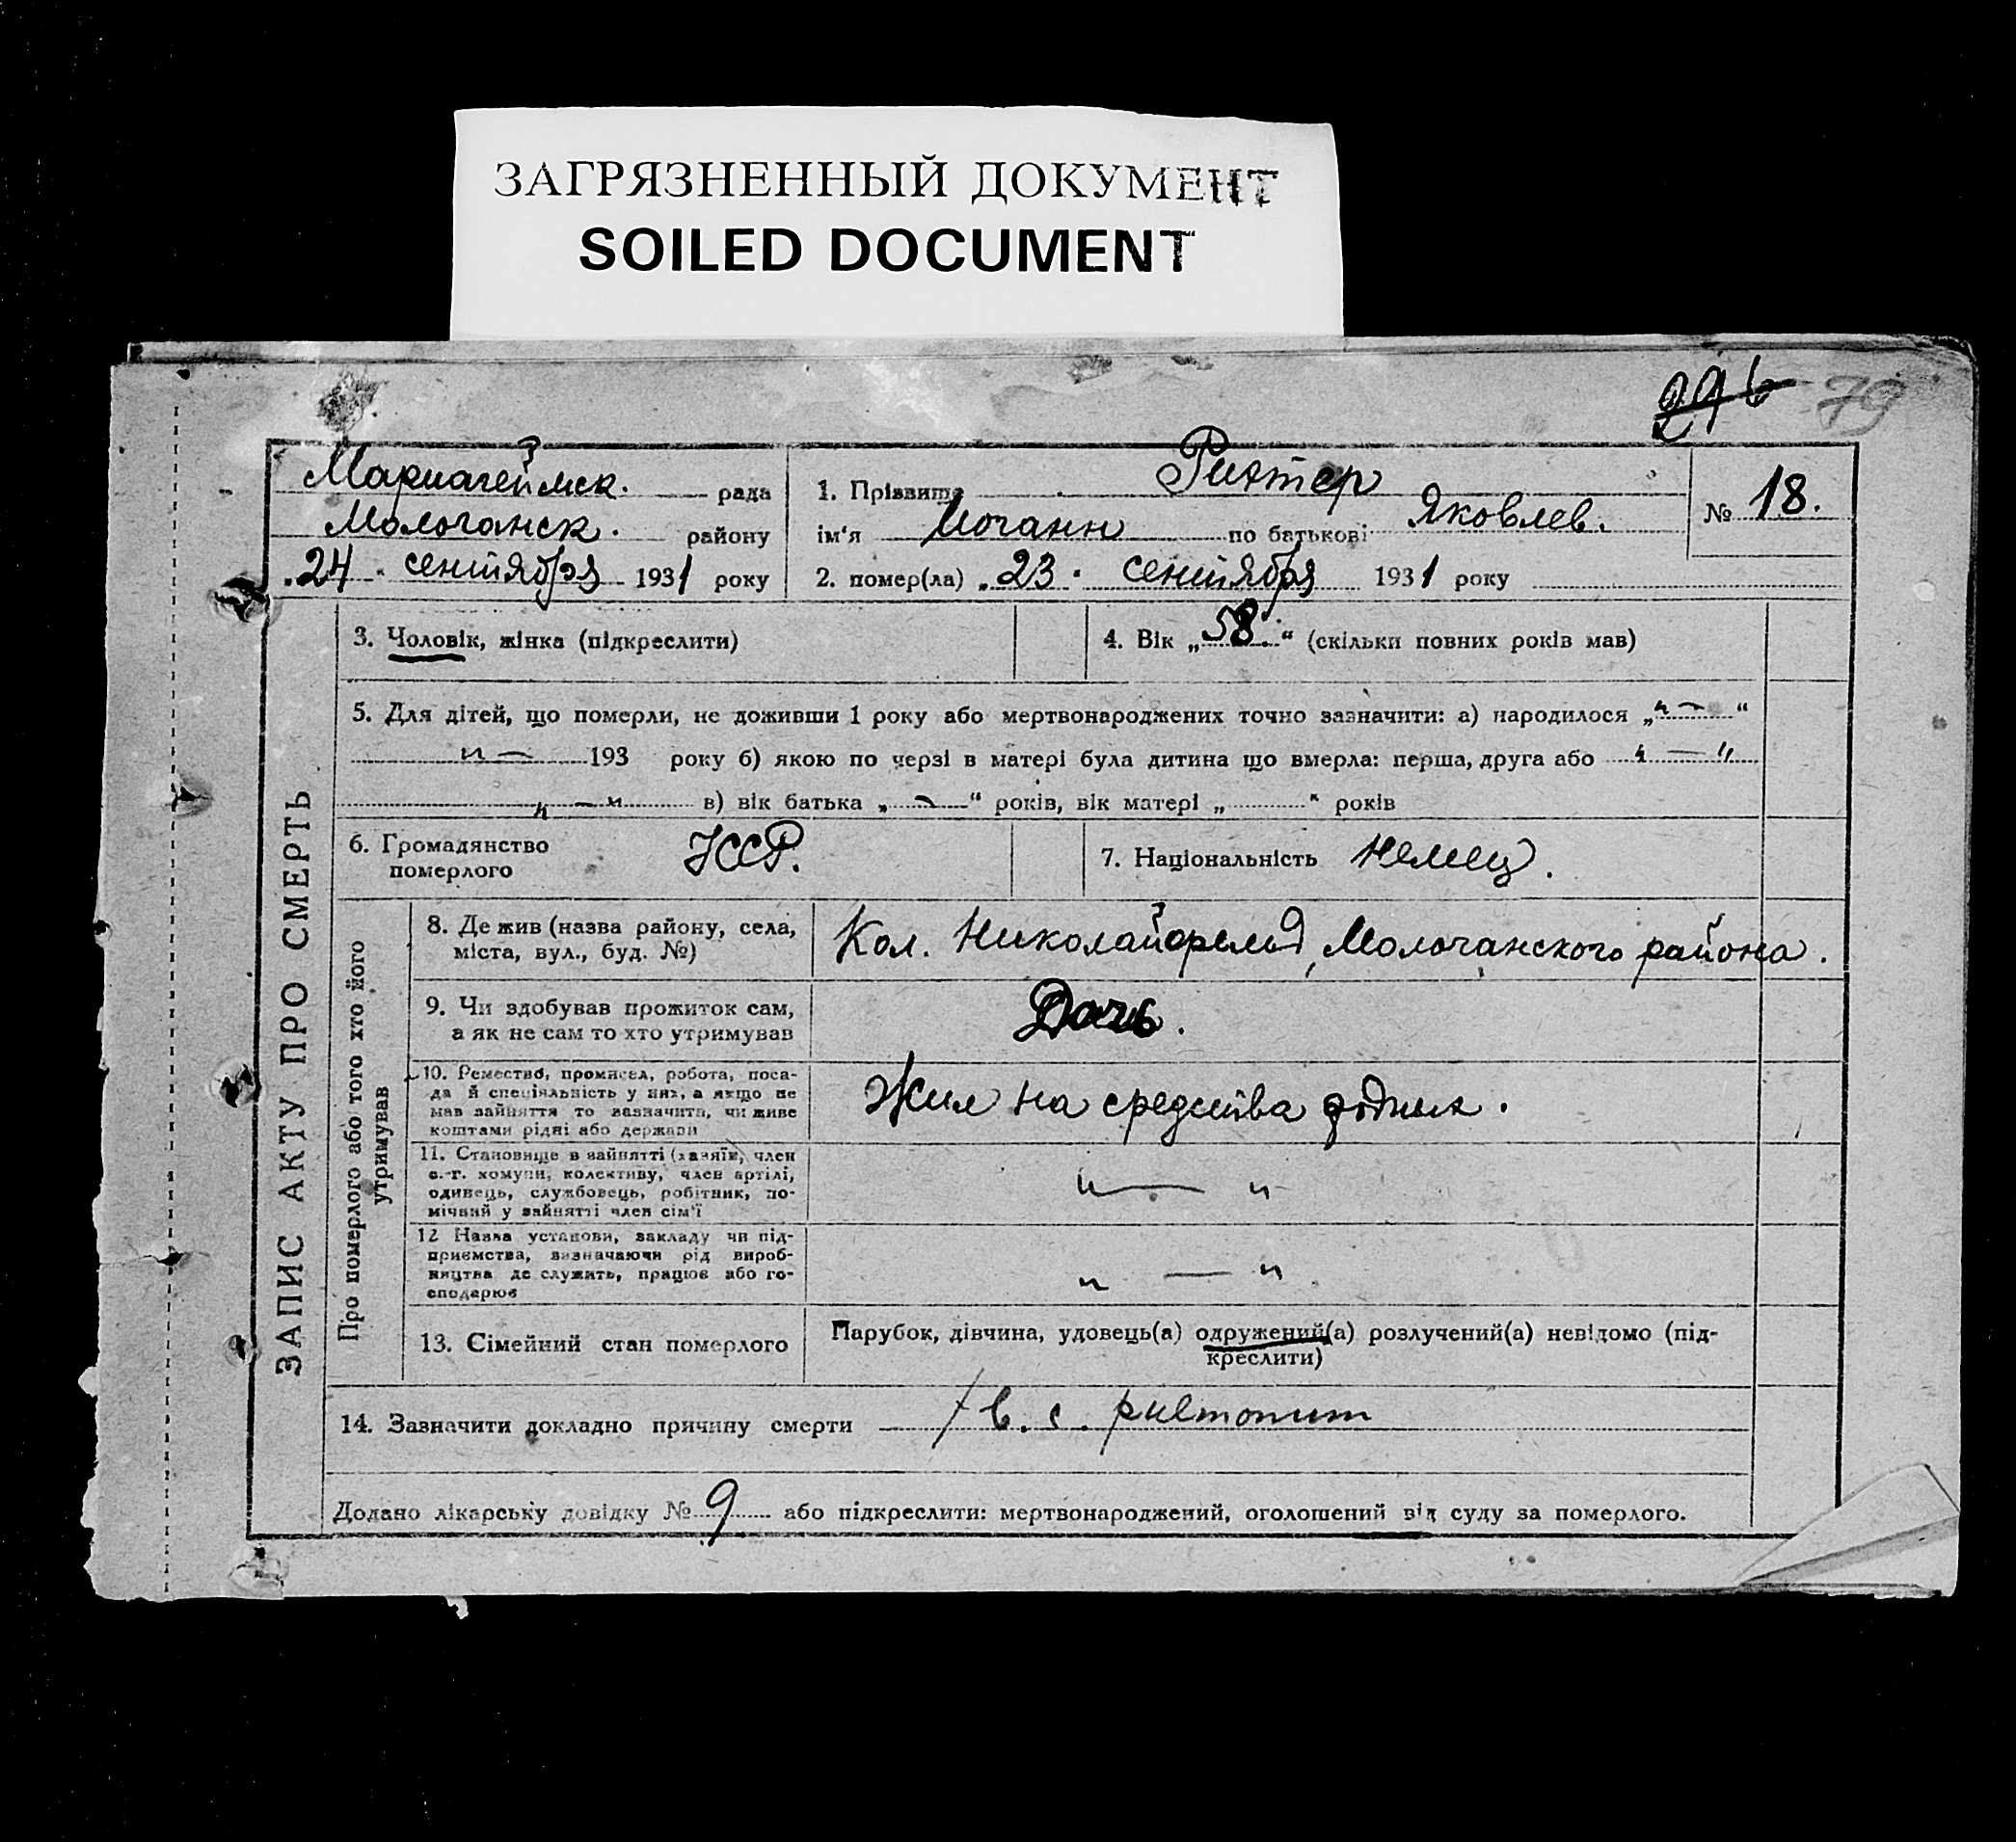 ЗАГРЯЗНЕННЫЙ ДОКУМЕНТ
SOILED DOCUMENT
296 79
Мариагеймск. рада
Молочанск. району
24. сентября 1931 року
1. Прізвище Рихтер
ім'я Иоганн по батькові Яковлев.
№ 18.
2. помер(ла) 23. сентября 1931 року
ЗАПИС АКТУ ПРО СМЕРТЬ
3. Чоловік, жінка (підкреслити)
4. Вік „58.“ (скільки повних років мав)
5. Для дітей, що померли, не доживши 1 року або мертвонароджених точно зазначити: а) народилося „ "— “
"— 193 року б) якою по черзі в матері була дитина що вмерла: перша, друга або " — "
" — " в) вік батька „ — “ років, вік матері „ “ років
6. Громадянство
померлого
УССР.
7. Національність немец.
Про померлого або того хто його
утримував
8. Де жив (назва району, села,
міста, вул., буд. №)
Кол. Николайфельд, Молочанского района.
9. Чи здобував прожиток сам,
а як не сам то хто утримував
Дочь.
10. Ремество, промисел, робота, поса-
да й спеціяльність у них, а якщо не
мав зайняття то зазначити, чи живе
коштами рідні або держави
Жил на средства родных.
11. Становище в зайнятті (хазяїн, член
с.-г. комуни, колективу, член артілі,
одинець, службовець, робітник, по-
мічний у зайнятті член сім'ї
" — "
12 Назва установи, закладу чи під-
приємства, визначаючи рід вироб-
ництва де служить, працює або го-
сподарює
" — "
13. Сімейний стан померлого
Парубок, дівчина, удовець(а) одружений(а) розлучений(а) невідомо (під-
креслити)
14. Зазначити докладно причину смерти
pulmonum
Додано лікарську довідку № 9 або підкреслити: мертвонароджений, оголошений від суду за померлого.